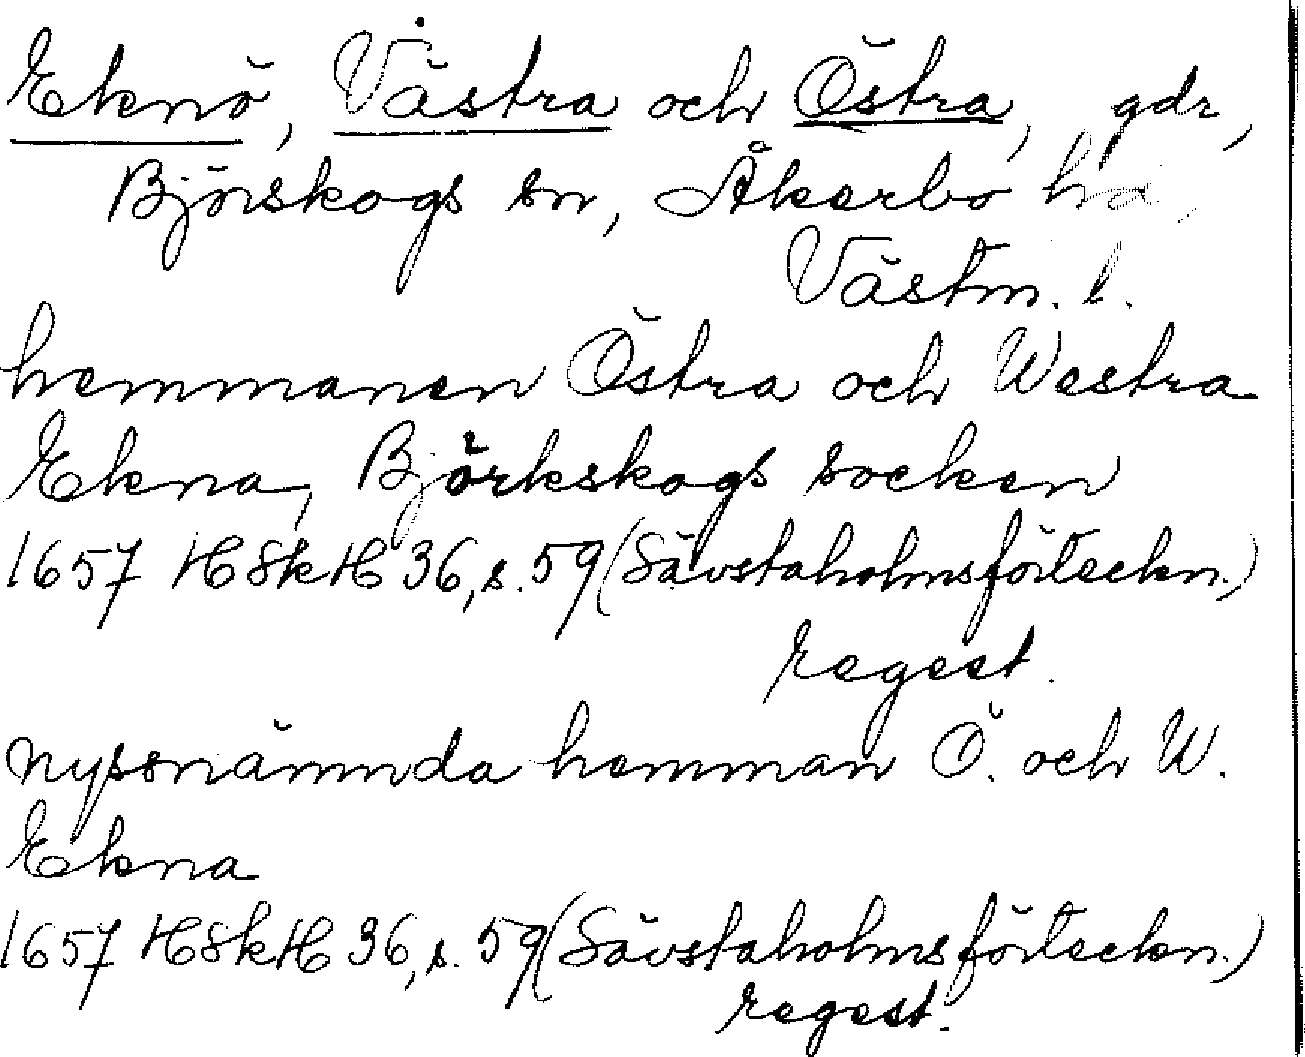 Eknö, Västra och Östra, gdr,
Björskogs sn, Åkerbo hd,
Västm. l.
hemmanen Östra och Westra
Ekna, Björkskogs socken
1657 HSkH 36, s. 59 (Sävstaholmsförteckn.)
regest.
nyssnämnda hemman Ö. och W.
Ekna
1657 HSkH 36, s. 59 (Sävstaholmsförteckn.)
regest.